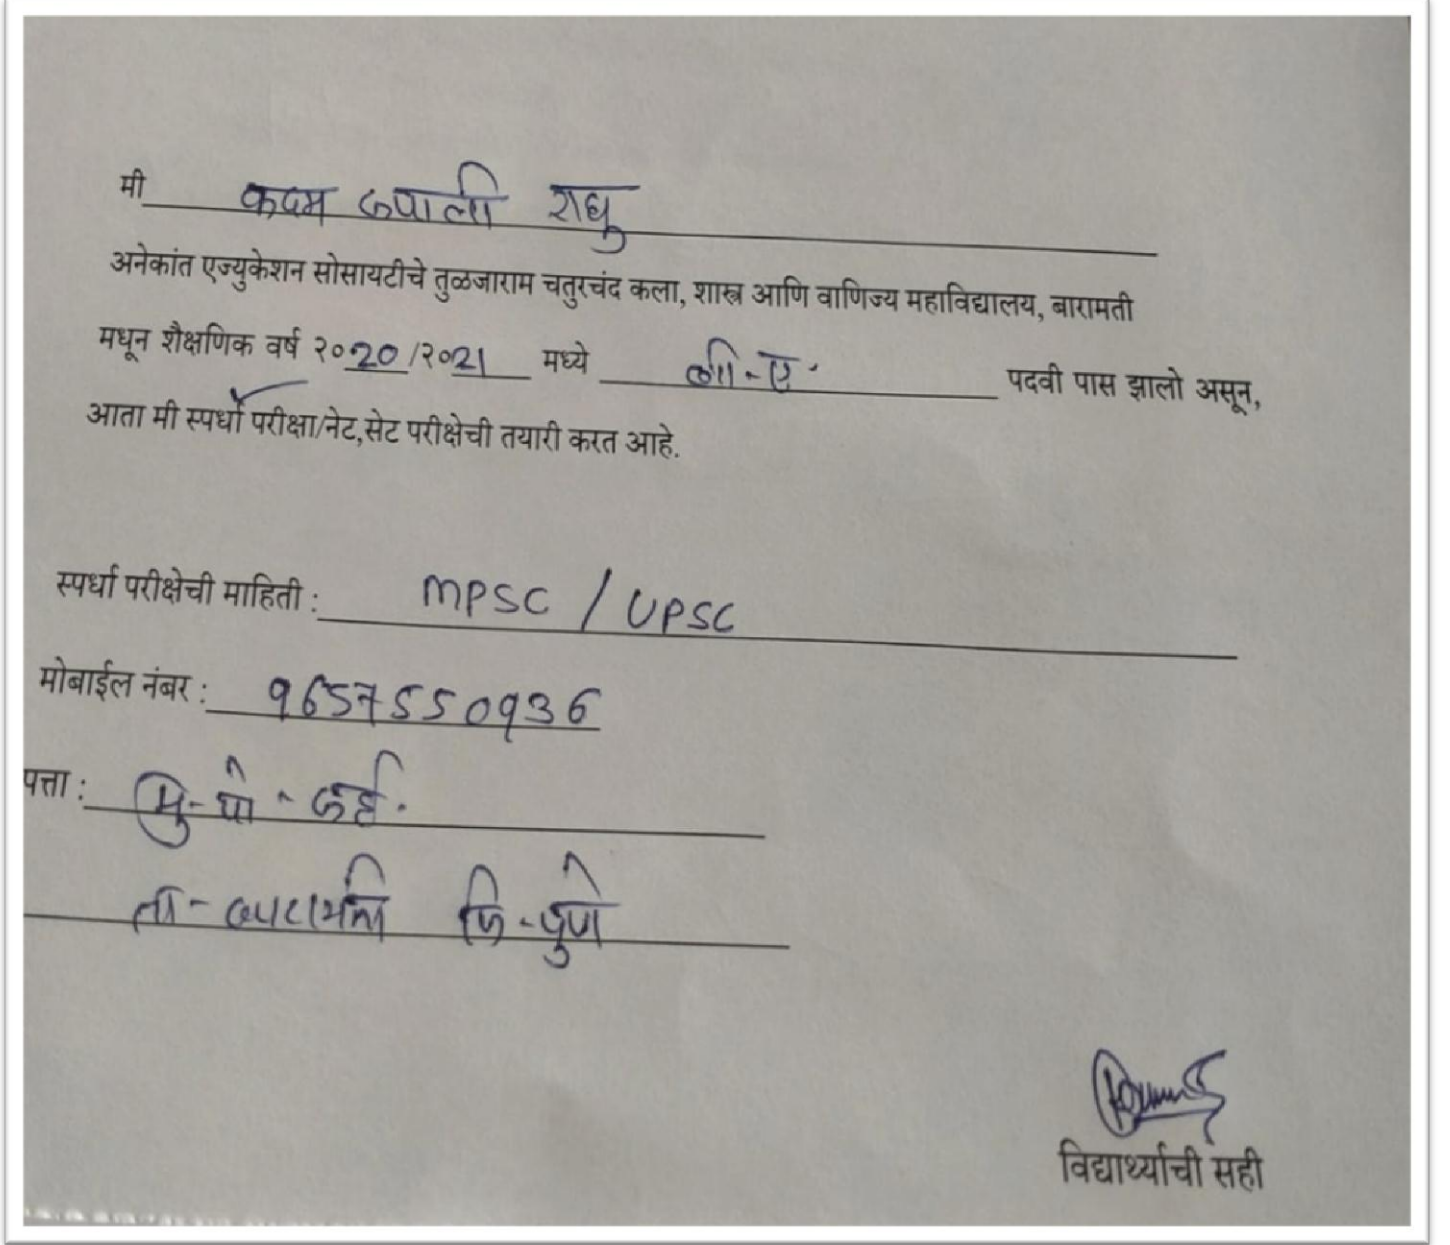 मी कदम रुपाली राघु
अनेकांत एज्युकेशन सोसायटीचे तुळजाराम चतुरचंद कला, शास्त्र आणि वाणिज्य महाविद्यालय, बारामती
मधून शैक्षणिक वर्ष २०20/२०21 मध्ये बी-ए. पदवी पास झालो असून,
आता मी स्पर्धा परीक्षा/नेट,सेट परीक्षेची तयारी करत आहे.
स्पर्धा परीक्षेची माहिती : MPSC / UPSC
मोबाईल नंबर : 9657550936
पत्ता : मु-पो-रुई.
ता-बारामती जि-पुणे
विद्यार्थ्याची सही